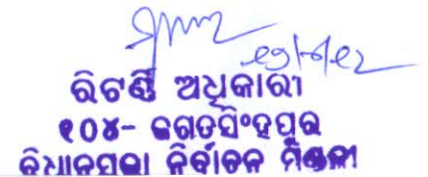 ରିଟର୍ଣ୍ଣିଂ ଅଧିକାରୀ
୧୦୪- ଜଗତସିଂହପୁର
ବିଧାନସଭା ନିର୍ବାଚନ ମଣ୍ଡଳୀ